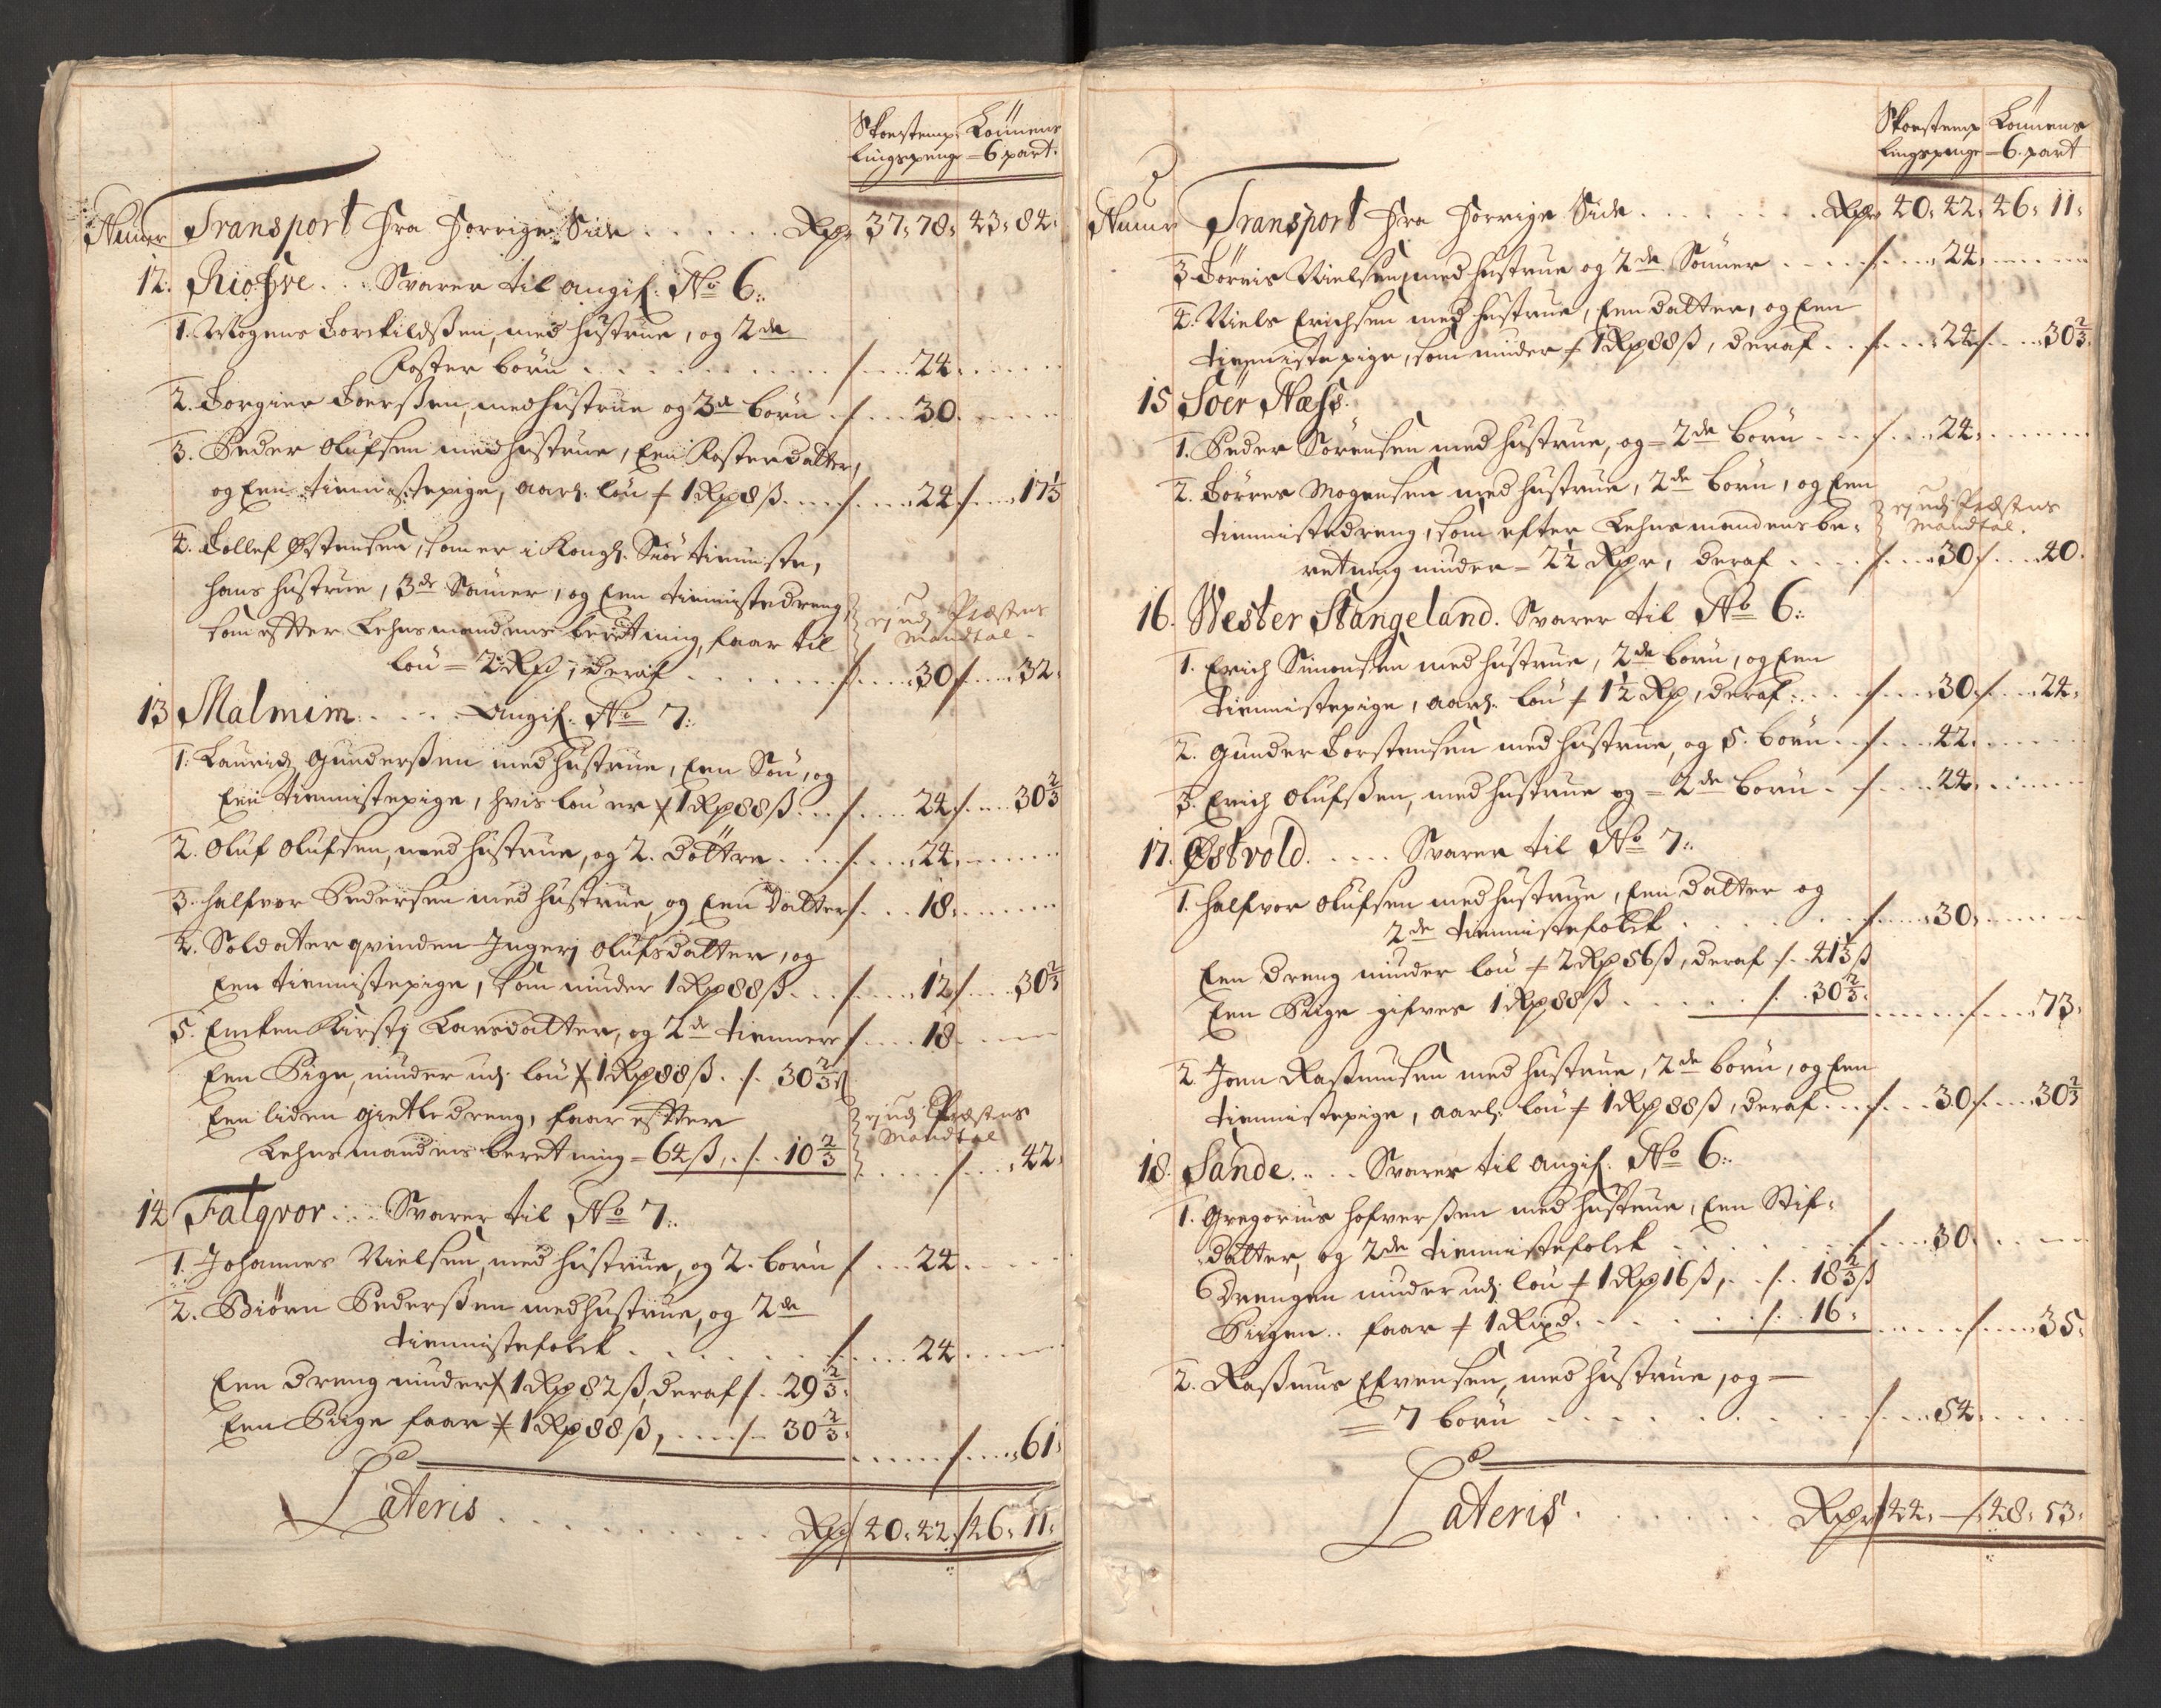 Skoestemp Lönnens
lingspenge 6 part.
Numr Transport fra forrige Side . . . . . Rdr 37: 78: 43: 84:
12. Riosne . . . Svarer til angif: No 6:
1. Mogens Torkildsen, med hustrue, og 2de
foster börn . . . . . 24.
2. Torgier Toersen, med hustrue og 3de börn . . 30.
3. Peder Olufsen med hustrue, Een fosterdatter,
og Een tiennistepige, aarl. lön 1 Rdr 8 ß . . 24 . . 17 1/3
4. Tollef Østensen, som er i Kongl. Siöe tienniste,
hans hustrue, 3de Sönner, og Een tiennistedreng,
som effter Lehnsmandens beretning, faar til
ej udj Præstens
Mandtal.
lön = 2 Rdr, deraf . . . . 30 . . 32.
13 Malmim . . . . Angif. No 7:
1. Laurids Gundersen med hustrue, Een Sön, og
Een tiennistepige, hvis lön er 1 Rdr 88 ß . . 24 . . 30 2/3
2. Oluf Olufsen, med hustrue, og 2. döttre . . . 24.
3. Halfvor Pedersen med hustrue, og Een datter . . 18.
4. Soldater qvinden Ingerj Olufsdatter, og
Een tiennistepige, som niuder 1 Rdr 88 ß . . 12 . . 30 2/3
5. Encken Kirstj Larsdatter, og 2de tiennere . . 18
Een Pige, niuder udj lön 1 Rdr 88 ß . . 30 2/3 ß
Een liden gietledreng, faar effter
ej udj Præstens
Mandtal
Lehnsmandens beretning = 64 ß . . 10 2/3 . . . . 42.
14 Falqvor . . . Svarer til No 7:
1. Johannes Nielsen, med hustrue, og 2. börn . . 24.
2. Biörn Pedersen med hustrue, og 2de
tiennistefolck . . . . . 24.
Een dreng niuder 1 Rdr 82 ß, deraf . . 29 2/3
Een Piige faar 1 Rdr 88 ß, . . . 30 2/3 . . . . 61.
Lateris . . . . . Rdr 40: 42. 46: 11:
Skoestemp Lönnens
lingspenge 6. part
Numr Transport fra forrige Side . . . . . Rdr 40: 42: 46: 11:
3 Törris Nielsen, med hustrue og 2de Sönner . . . 24.
4. Niels Erichsen med hustrue, Een datter, og Een
tiennistepige, som niuder 1 Rdr 88 ß, deraf . . 24 . . 30 2/3.
15 Söer Næss.
1. Peder Sörensen med hustrue, og 2de börn . . 24.
2. Törres Mogensen med hustrue, 2de börn, og Een
tiennistedreng, som efter Lehnsmandens be-
ej udj Præstens
Mandtal.
retning niuder 2 1/2 Rdr, deraf . . . 30 . . 40.
16. Wester Stangeland. Svarer til No 6:
1. Erich Simonsen med hustrue, 2de börn, og Een
tiennistepige, aarl: lön 1 1/2 Rdr, deraf . . 30 . . 24.
2. Gunder Torstensen med hustrue, og 5. börn . . 42.
3. Erich Olufsen, med hustrue og 2de börn . . 24.
17. Østvold. . . . . Svarer til No 7:
1. Halfvor Olufsen med hustrue, Een datter og
2de tiennistefolck . . . . 30.
Een dreng niuder lön 2 Rdr 56 ß, deraf . . 41 1/3 ß
Een Piige gifves 1 Rdr 88 ß . . . . 30 2/3 . . . . 73.
2 Joen Rasmusen med hustrue, 2de börn, og Een
tiennistepige, aarl: lön 1 Rdr 88 ß, deraf . . 30 . . 30 2/3
18. Sande . . . Svarer til angif. No 6:
1. Gregorius Hofversen med hustrue, Een Stif-
datter, og 2de tiennistefolck . . . . 30.
Drengen niuder udj lön 1 Rdr 16 ß, . . 18 2/3 ß
Piigen . . faar 1 Rixd. . . . . 16. . . . . 35.
2. Rasmus Efvensen, med hustrue, og
7 börn . . . . . 54.
Lateris . . . . . Rdr 44. — 48: 53: